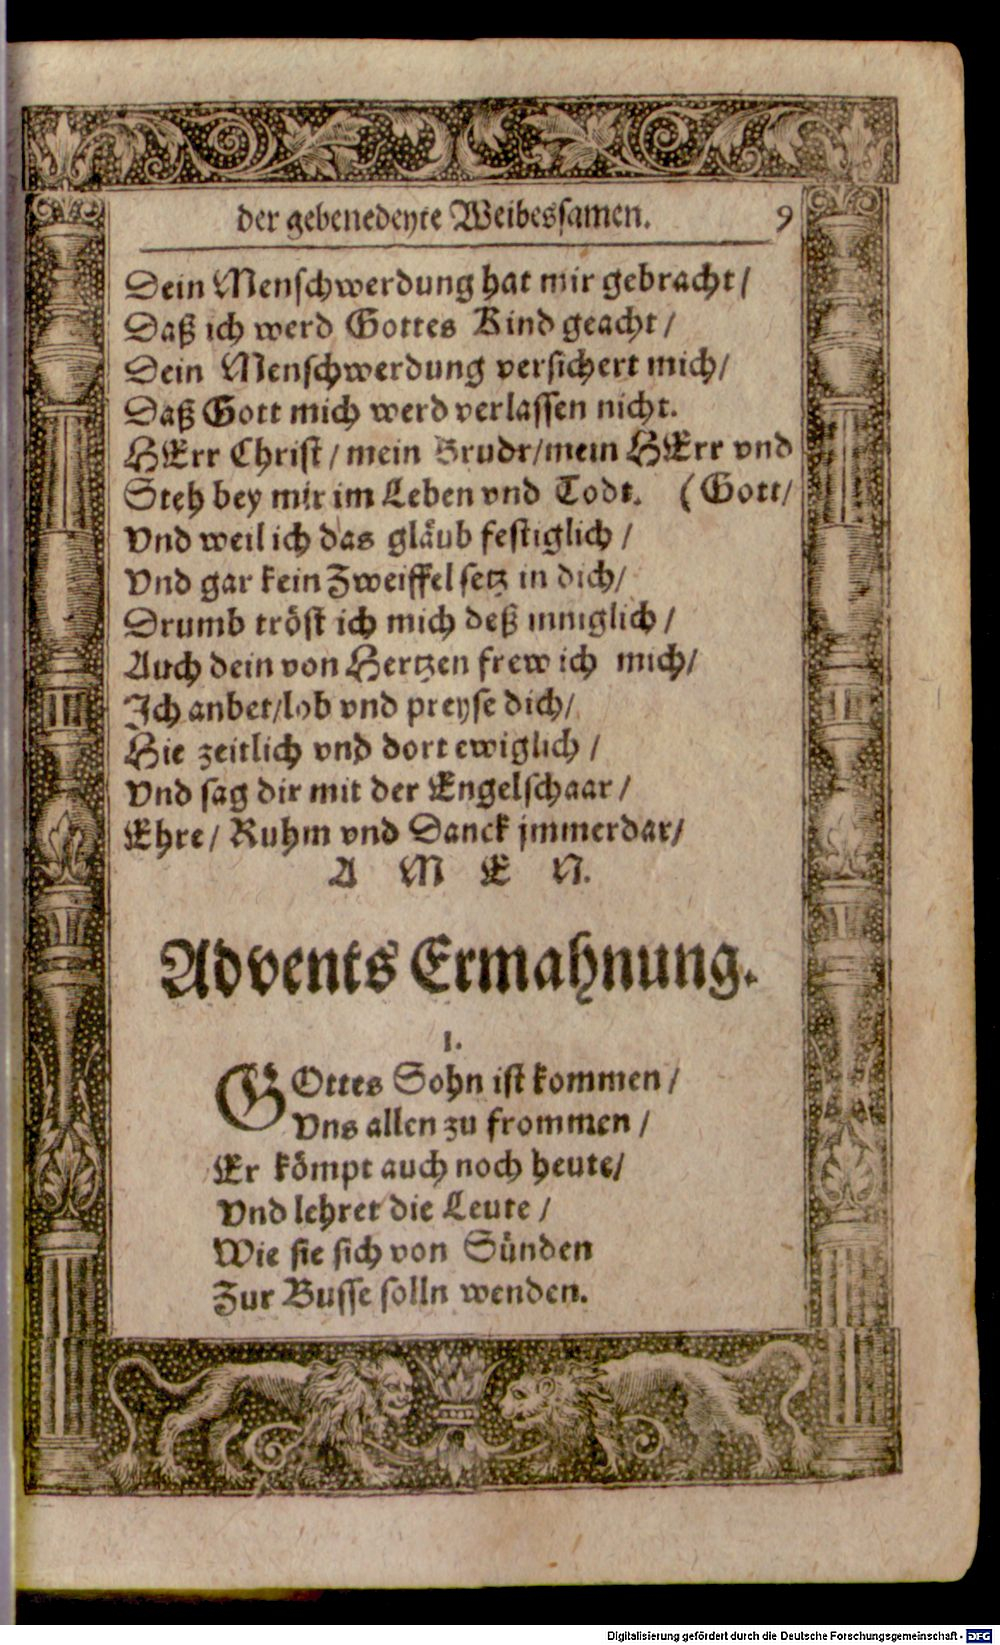 der gebenedeyte Weibessamen. 9
Dein Menschwerdung hat mir gebracht/
Daß ich werd Gottes Kind geacht/
Dein Menschwerdung versichert mich/
Daß Gott mich werd verlassen nicht.
HErr Christ/ mein Brudr/mein HErr vnd
Steh bey mir im Leben vnd Todt. (Gott/
Vnd weil ich das gläub festiglich/
Vnd gar kein Zweiffel setz in dich/
Drumb tröst ich mich deß inniglich/
Auch dein von Hertzen frew ich mich/
Ich anbet/lob vnd preyse dich/
Hie zeitlich vnd dort ewiglich/
Vnd sag dir mit der Engelschaar/
Ehre/ Ruhm vnd Danck jmmerdar/
A M E N.
Advents Ermahnung.
1.
GOttes Sohn ist kommen/
Vns allen zu frommen/
Er kömpt auch noch heute/
Vnd lehret die Leute/
Wie sie sich von Sünden
Zur Busse solln wenden.
Digitalisierung gefördert durch die Deutsche Forschungsgemeinschaft - DFG